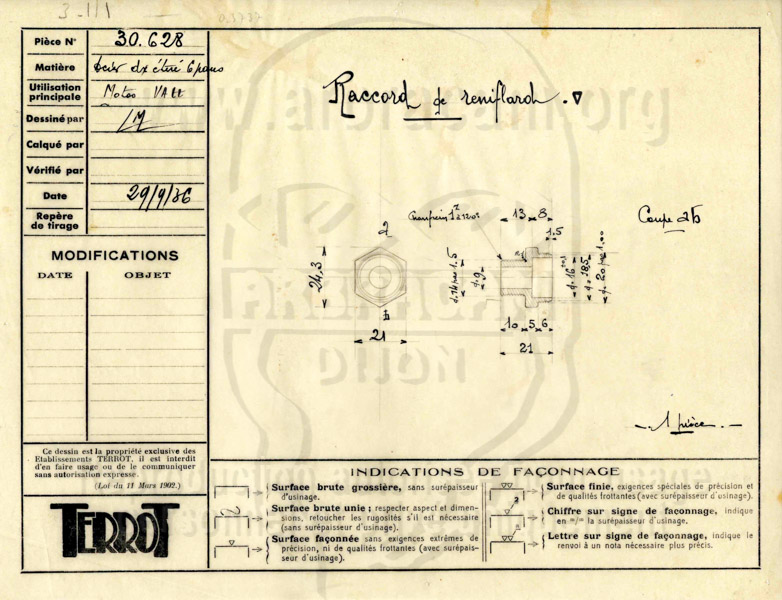 3-111
Pièce N° 30.628
Matière dx étiré 6 pans
Utilisation principale Motos VATT
Dessiné par LM
Calqué par
Vérifié par
Date 29/9/36
Repère de tirage
MODIFICATIONS
DATE OBJET
Ce dessin est la propriété exclusive des
Etablissements TERROT, il est interdit
d'en faire usage ou de le communiquer
sans autorisation expresse.
(Loi du 11 Mars 1902.)
TERROT
Raccord de reniflard.
Coupe ab
a
b
24,3
21
13 8
1.5
d.14 pas 1.5
d.9
d.16
d.18,5
d.20 pas 1.00
10 5 6
21
1 pièce.
INDICATIONS DE FAÇONNAGE
Surface brute grossière, sans surépaisseur
d'usinage.
Surface brute unie; respecter aspect et dimen-
sions, retoucher les rugosités s'il est nécessaire
(sans surépaisseur d'usinage).
Surface façonnée sans exigences extrêmes de
précision, ni de qualités frottantes (avec surépais-
seur d'usinage).
Surface finie, exigences spéciales de précision et
de qualités frottantes (avec surépaisseur d'usinage).
Chiffre sur signe de façonnage, indique
en m/m la surépaisseur d'usinage.
Lettre sur signe de façonnage, indique le
renvoi à un nota nécessaire plus précis.
ARBRACAN
DIJON